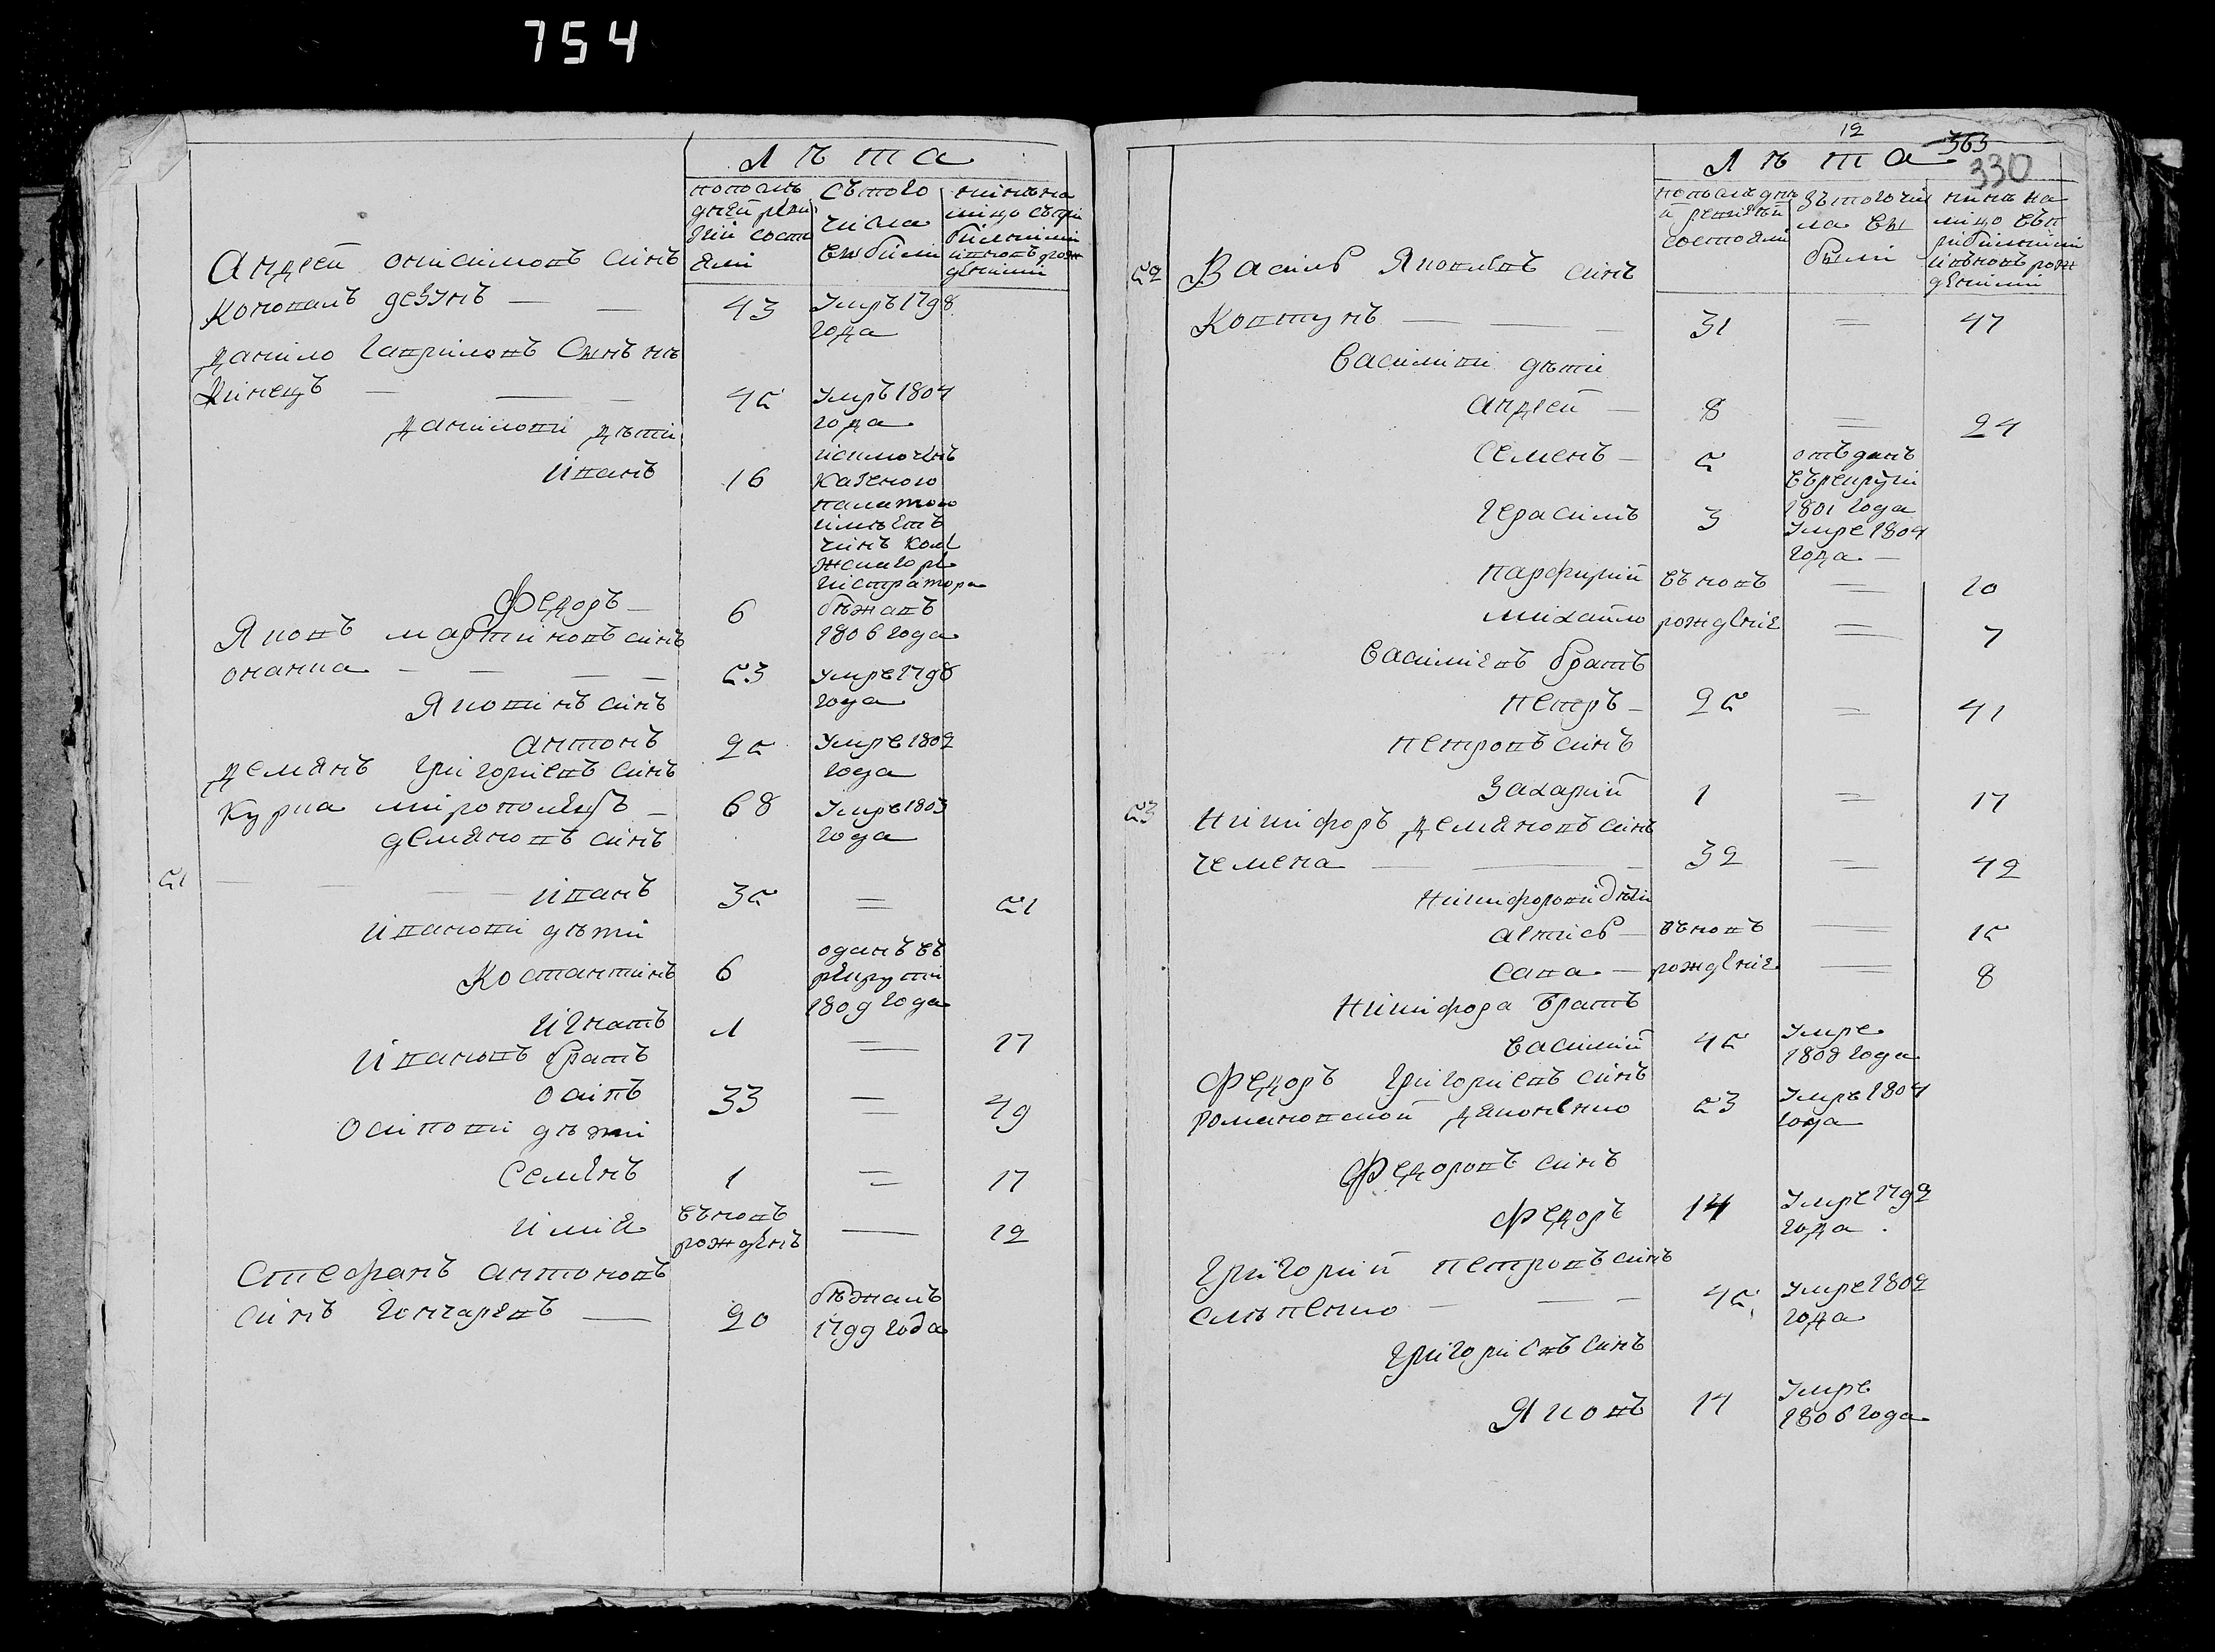 754
Лѣта
пополѣ
дней реви
зии состо
яли
Съ того
числа
выбыли
нинѣ на
лицо съ при
билими
и вновь рож
деними
Андрей онисимовъ синъ
Коновалъ
43
Умръ 1798
года
Данило Гавриловъ Сынъ
45
Умръ 1804
года
Данилови дѣти
Иванъ
16
исключенъ
Казеною
палатою
имѣетъ
чинъ кол
жскаго ре
гистратора
Федоръ
6
бѣжавъ
1806 года
Яковъ мартиновъ синъ
онанка
53
Умре 1798
года
Яковинъ синъ
антонъ
25
Умре 1802
года
Демянъ Григориевъ синъ
Курка
68
Умре 1803
года
демяновъ синъ
51
Иванъ
35
=
51
Иванови дѣти
Костантинъ
6
оданъ въ
рекрути
1809 года
Игнатъ
1
=
17
Ивановъ братъ
осипъ
33
=
49
Осипови дѣти
Семенъ
1
=
17
илия
въновь
рожденъ
—
12
Стефанъ антоновъ
синъ Гончаревъ
20
бѣжалъ
1799 года
12
363
330
Лѣта
попослѣдне
й ревизии
состояли
съ того чис
ла вы
были
нинѣ на
лицо съ п
рибилими
и вновь рож
деними
52 Василь Яковлевъ синъ
Ковтунъ
31
=
47
Василиви дѣти
андрей
8
=
24
Семенъ
5
отъданъ
въ рекрути
1801 года
Герасимъ
3
Умре 1804
года
парфирий
въновь
=
10
михайло
рождение
=
7
Василиевъ братъ
петръ
25
=
41
петровъ синъ
Захарий
1
=
17
53 Никифоръ демяновъ синъ
чемена
32
=
42
Никифорови дѣти
въновь
=
15
Сава
рождение
=
8
Никифора братъ
Василий
45
Умре
1808 года
Федоръ Григориевъ синъ
романовской дяконенко
53
Умръ 1804
года
Федоровъ синъ
Федоръ
14
Умре 1792
года
Григорий петровъ синъ
слѣпенко
45
Умре 1802
года
Григориевъ синъ
Яковъ
14
Умре
1806 года